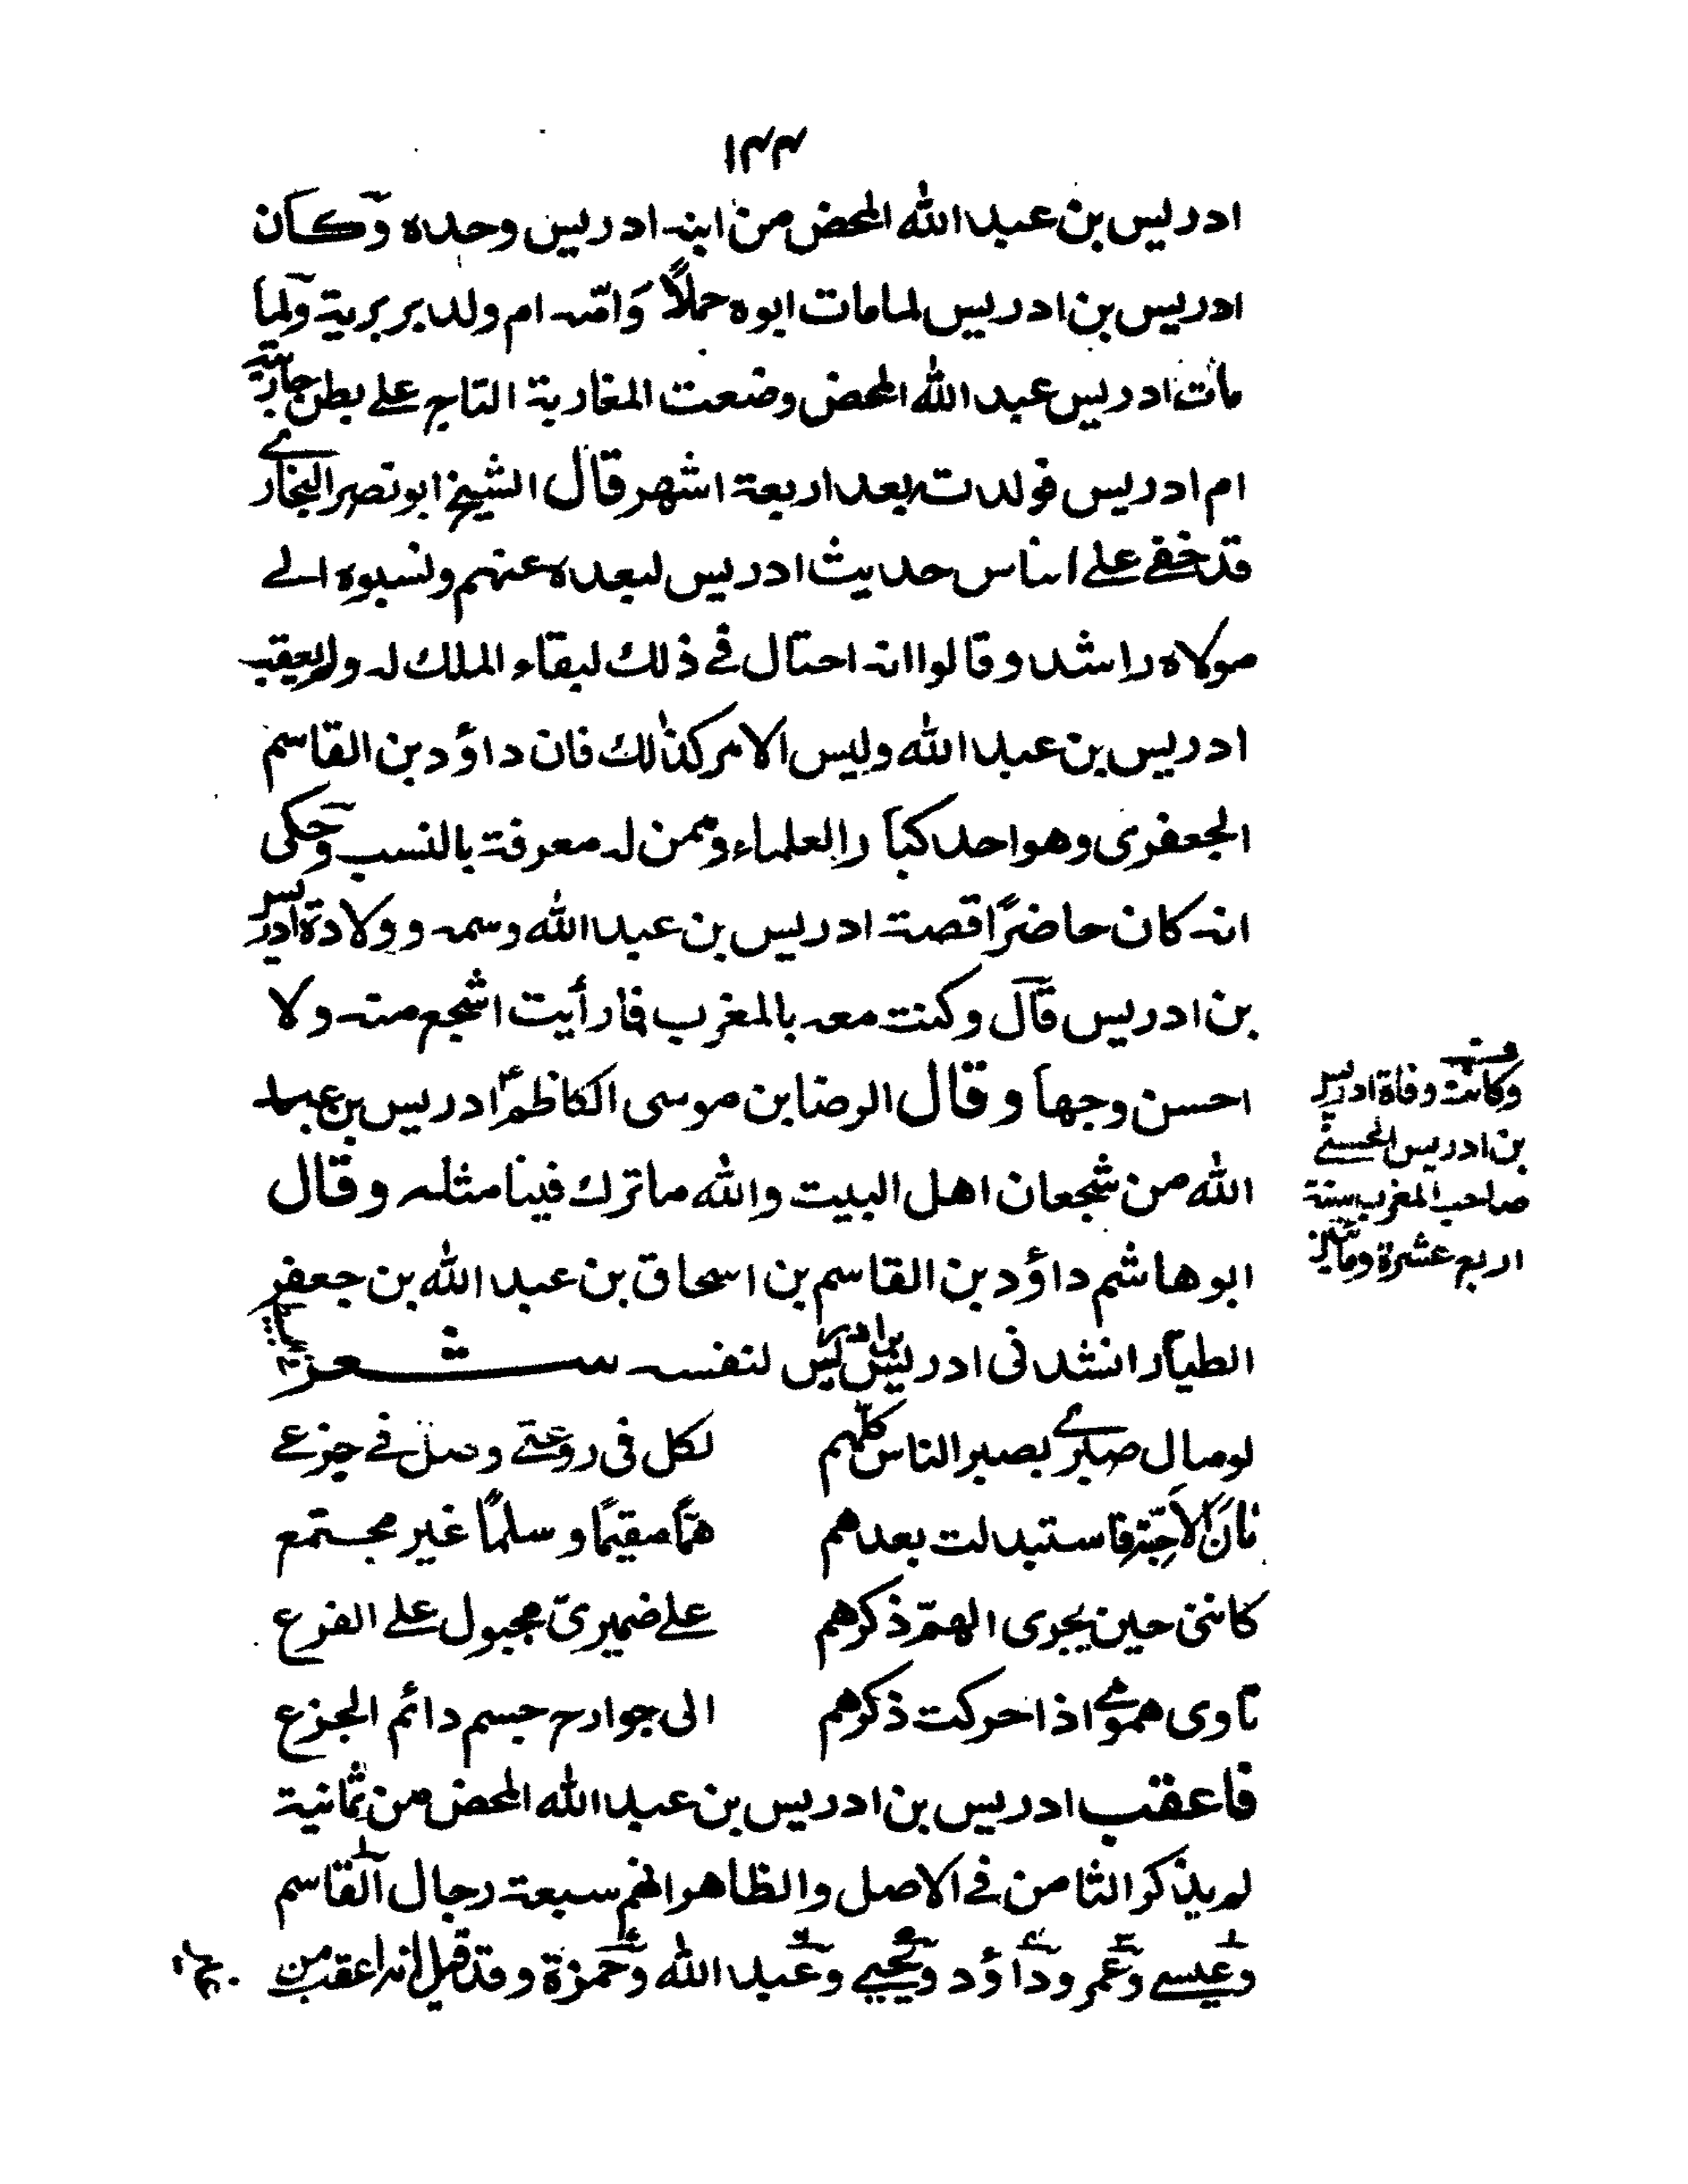 ١٣٣
ادريس بن عبد الله المحض من ابنه ادريس وحده وكان
ادريس بن ادريس لما مات ابوه حملاً وَامّه ام ولد بربرية ولما
مات ادريس عبد الله المحض وضعت المغاربة التاج على بطن جاريته
ام ادريس فولدت بعد اربعة اشهر قال الشيخ ابو نصر البخارى
قد خفى على الناس حديث ادريس لبعده عنهم ونسبوه الى
مولاه راشد وقالوا انه احتال فى ذلك لبقاء الملك له ولم يعقب
ادريس بن عبد الله وليس الامر كذلك فان داؤد بن القاسم
الجعفرى وهو احد كبار العلماء وممن له معرفة بالنسب وحكى
انه كان حاضرًا قصة ادريس بن عبد الله وسمه وولادة ادريس
بن ادريس قال وكنت معه بالمغرب فما رأيت اشجع منه ولا
احسن وجهاً وقال الرضا بن موسى الكاظم ادريس بن عبد
الله من شجعان اهل البيت والله ما ترك فينا مثله وقال
ابو هاشم داؤد بن القاسم بن اسحاق بن عبد الله بن جعفر
الطيار انشدنى ادريس بن ادريس لنفسه شعر
لو مال صبرى بصبر الناس كلهم لكل فى روعتى وضل فى جزعى
بان الاحبّة فاستبدلت بعدهم همًّا مقيمًا وسلمًا غير مجتمع
كاننى حين يجرى الهمّ ذكرهم على ضميرى مجبول على الفزع
تاوى همومى اذا حركت ذكرهم الى جوارح جسم دائم الجزع
فاعقب ادريس بن ادريس بن عبد الله المحض من ثمانية
لم يذكر الثامن فى الاصل والظاهر انهم سبعة رجال القاسم
وعيسى وعمر وداؤد ويحيى وعبد الله وحمزة وقد قيل انه اعقب من
وكانت وفاة ادريس
بن ادريس الحسنى
صاحب المغرب سنة
اربع عشرة ومأتين